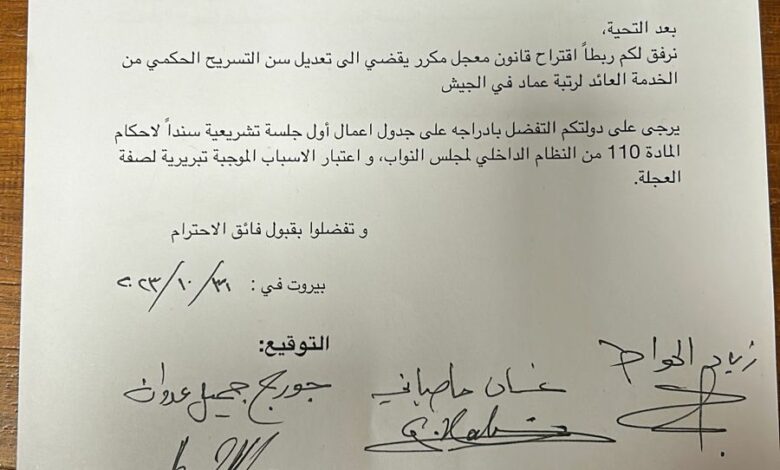 بعد التحية،
نرفق لكم ربطاً اقتراح قانون معجل مكرر يقضي الى تعديل سن التسريح الحكمي من
الخدمة العائد لرتبة عماد في الجيش
يرجى على دولتكم التفضل بادراجه على جدول اعمال أول جلسة تشريعية سنداً لاحكام
المادة 110 من النظام الداخلي لمجلس النواب، و اعتبار الاسباب الموجبة تبريرية لصفة
العجلة.
و تفضلوا بقبول فائق الاحترام
بيروت في : ٢٠٢٣/١٠/٣١
التوقيع:
زياد الحواط
غسان حاصباني
جورج جميل عدوان